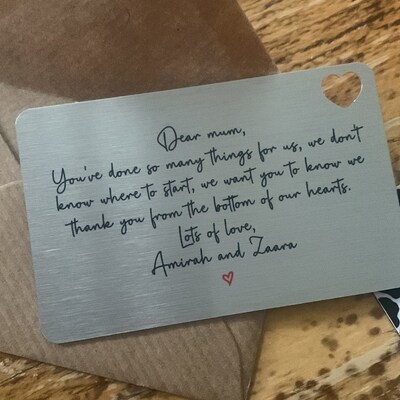 Dear mum,
You've done so many things for us, we don't
know where to start, we want you to know we
thank you from the bottom of our hearts.
Lots of love,
Amirah and Zaara